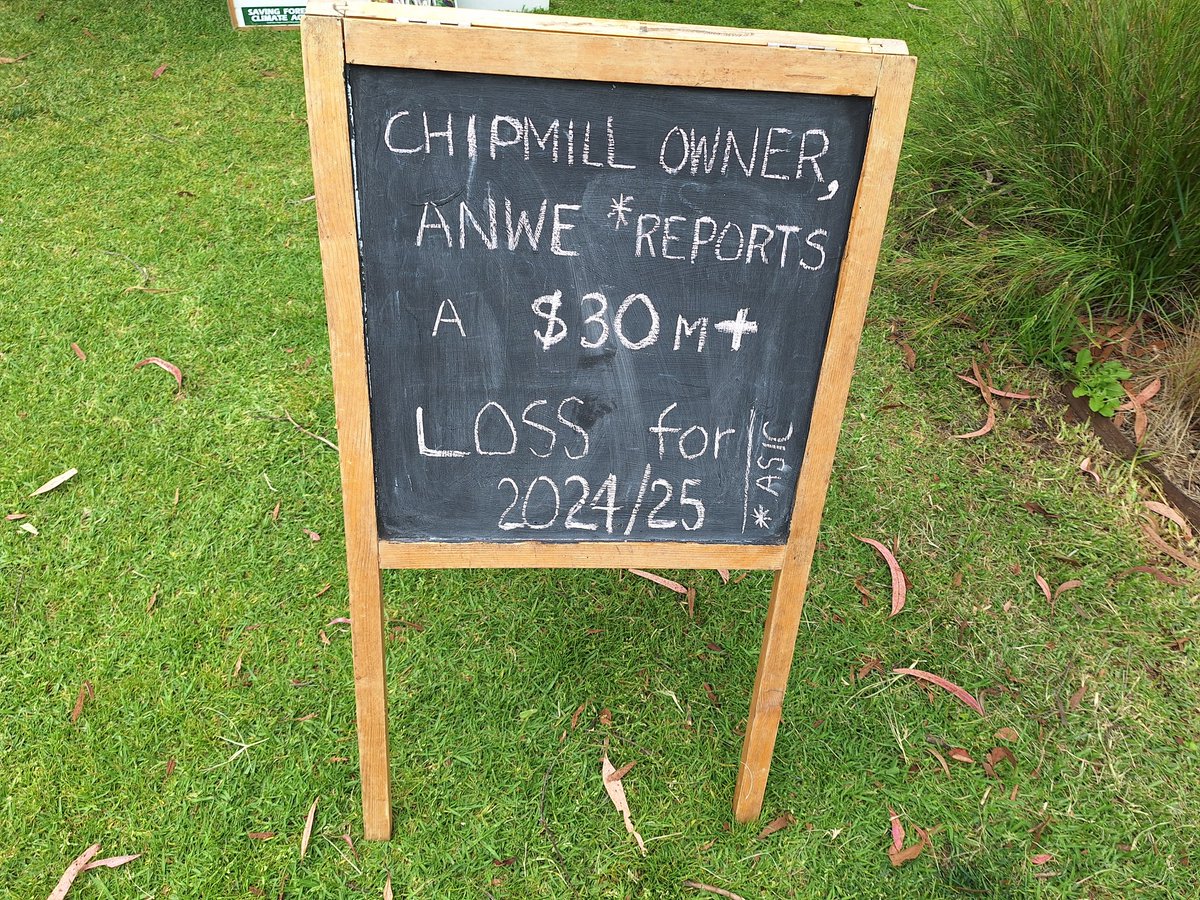 SAVING FORE
CLIMATE AC
CHIPMILL OWNER,
ANWE *REPORTS
A $30M+
LOSS for
2024/25
*ASIC